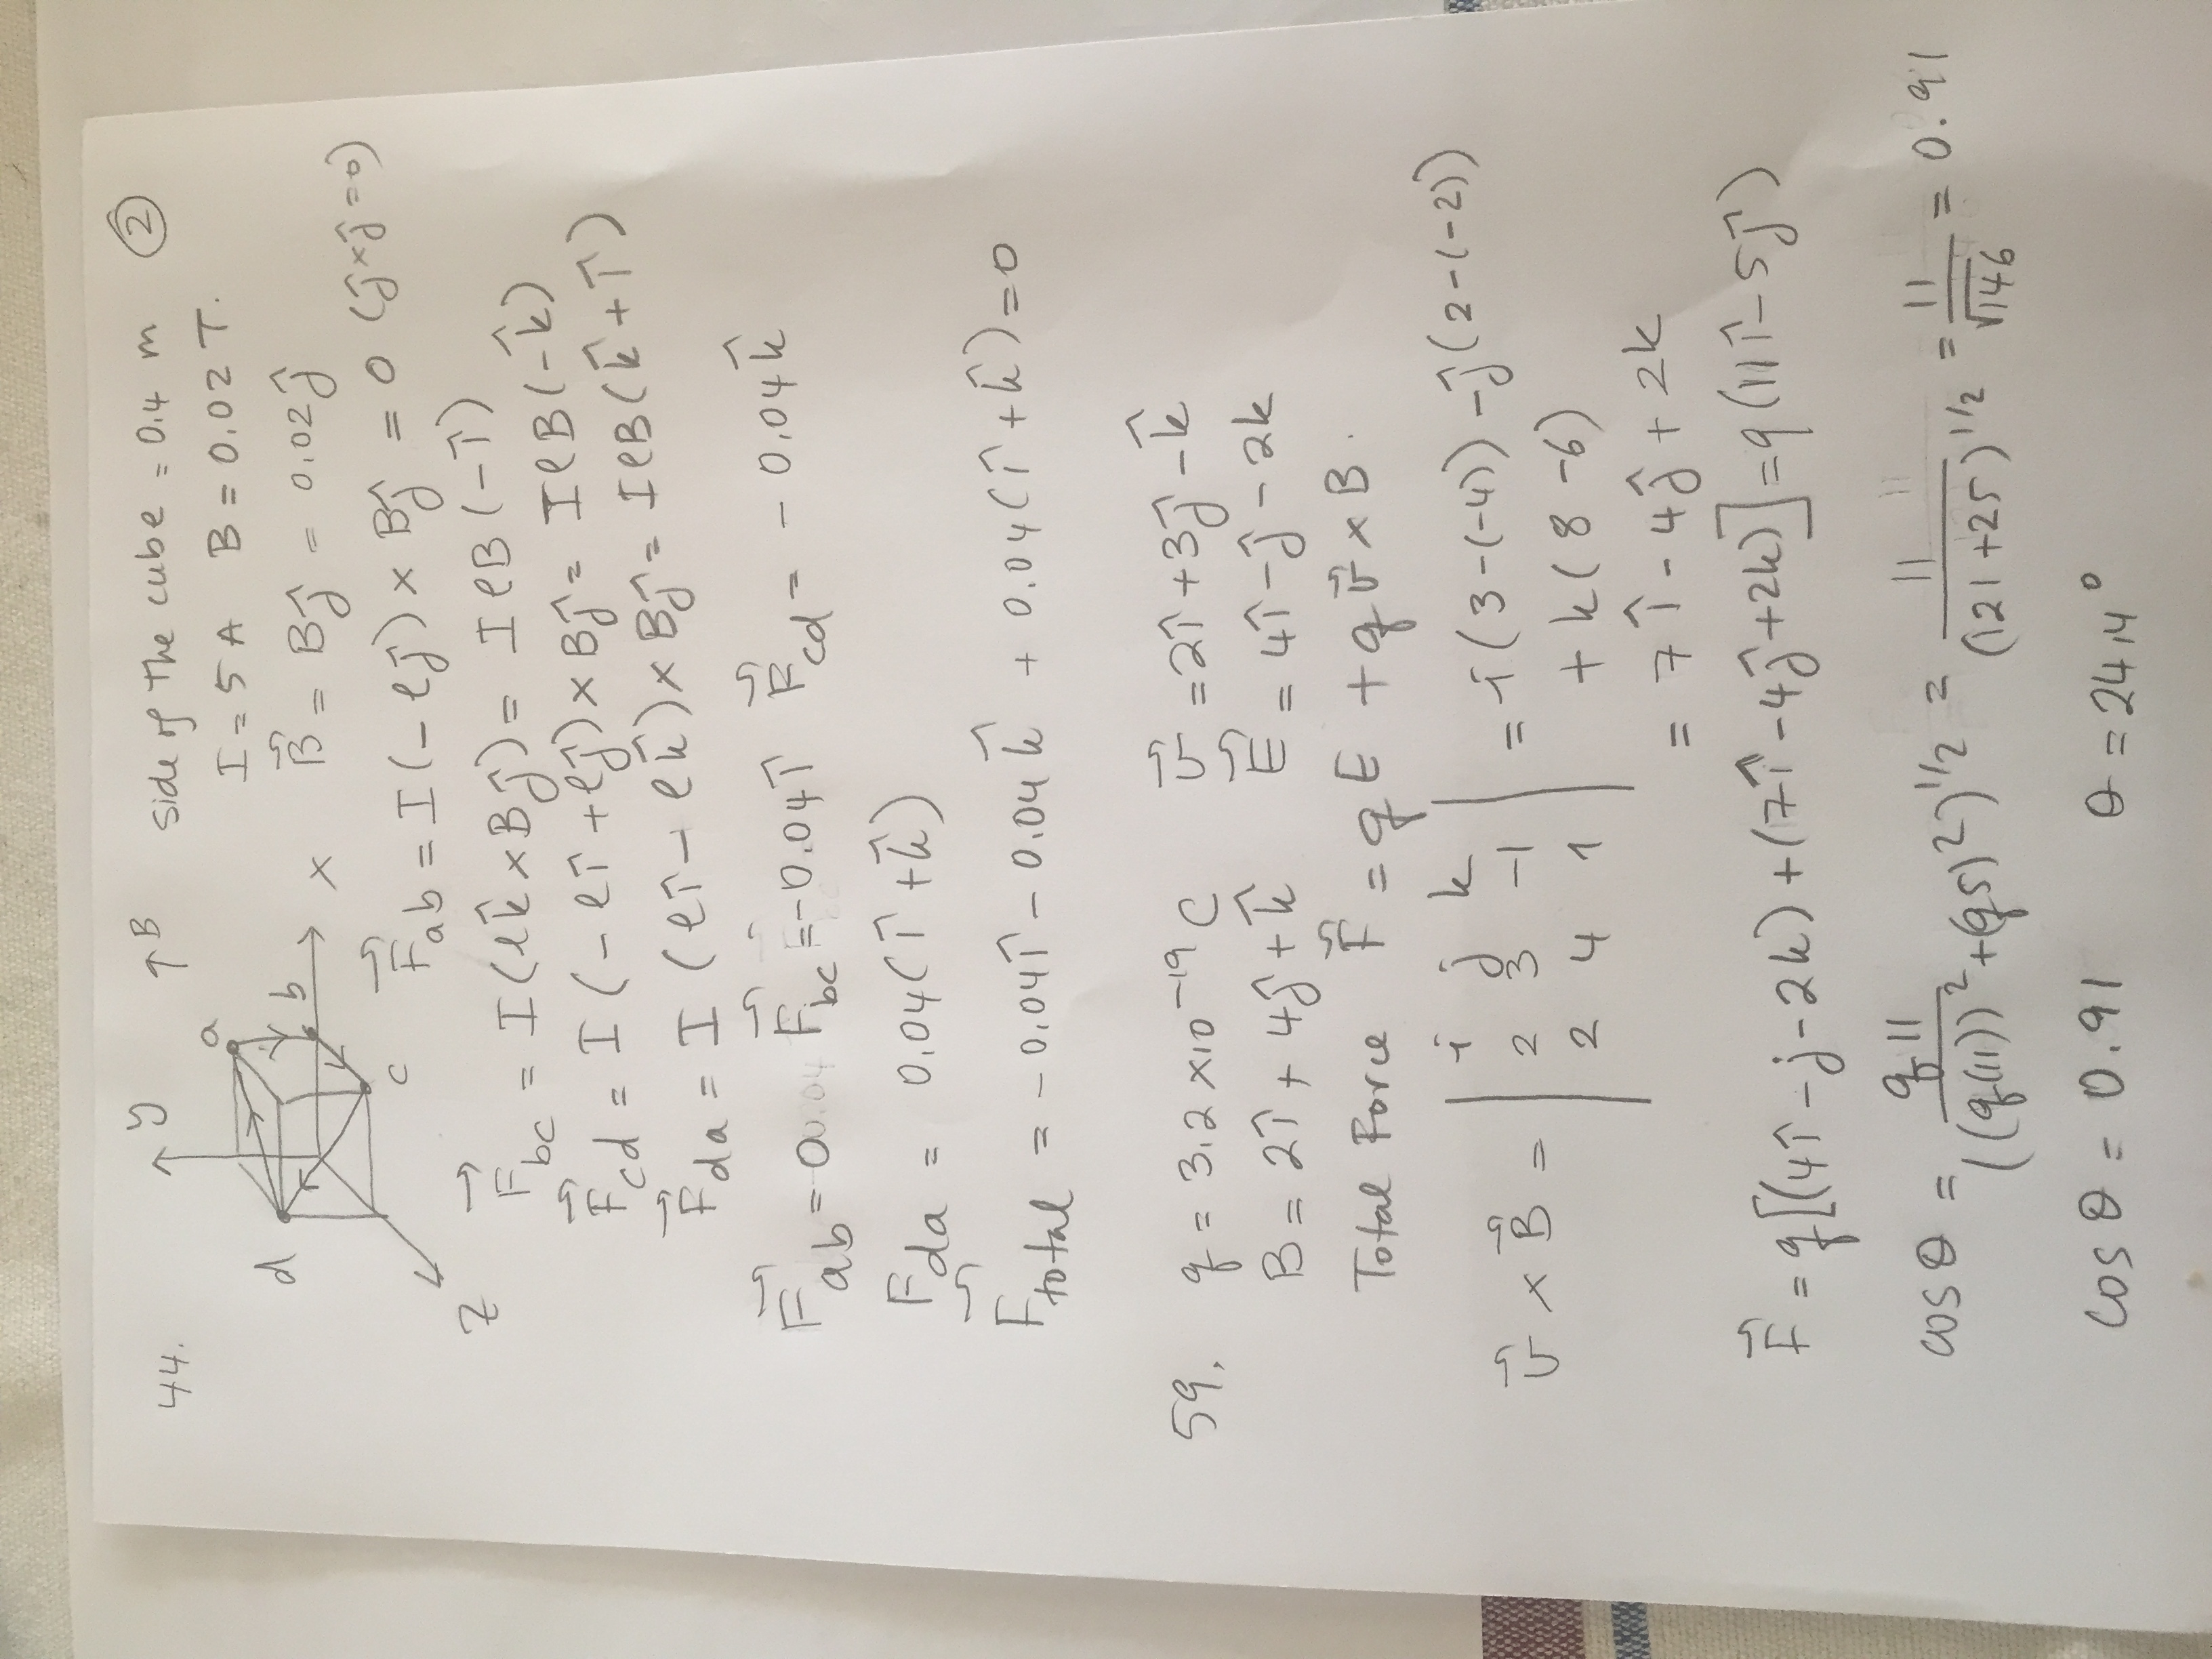 44. y ↑B side of the cube = 0.4 m ②
a I = 5 A B = 0.02 T.
d b x B⃗ = Bĵ = 0.02ĵ
c F⃗ab = I(-ℓĵ) × Bĵ = 0 (ĵ×ĵ=0)
z
F⃗bc = I(ℓk̂ × Bĵ) = IℓB(-î)
F⃗cd = I(-ℓî + ℓĵ) × Bĵ = IℓB(-k̂)
F⃗da = I(ℓî - ℓk̂) × Bĵ = IℓB(k̂ + î)
F⃗ab = 0 F⃗bc = -0.04î F⃗cd = -0.04k̂
Fda = 0.04(î + k̂)
F⃗total = -0.04î - 0.04k̂ + 0.04(î + k̂) = 0
59. q = 3.2 ×10⁻¹⁹ C v⃗ = 2î + 3ĵ - k̂
B = 2î + 4ĵ + k̂ E⃗ = 4î - ĵ - 2k
Total Force F⃗ = qE + qv⃗ × B.
i j k
v⃗ × B⃗ = | 2 3 -1 | = i(3-(-4)) - ĵ(2-(-2))
2 4 1 + k(8 - 6)
= 7î - 4ĵ + 2k
F⃗ = q[(4î - j - 2k) + (7î - 4ĵ + 2k)] = q(11î - 5ĵ)
cosθ = q11 / ((q(11))² + (q5)²)^1/2 = 11 / (121 + 25)^1/2 = 11/√146 = 0.91
cosθ = 0.91 θ = 24.4°